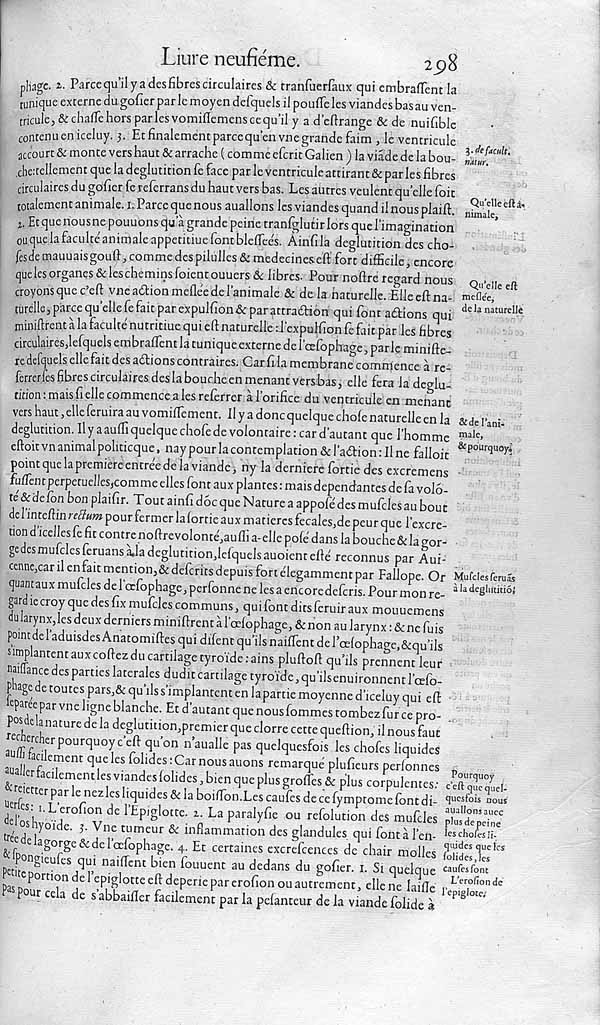 Liure neufiéme. 298
phage. 2. Parce qu'il y a des fibres circulaires & tranſuerſaux qui embraſſent la
tunique externe du goſier par le moyen deſquels il pouſſe les viandes bas au ven-
tricule, & chaſſe hors par les vomiſſemens ce qu'il y a d'eſtrange & de nuiſible
contenu en iceluy. 3. Et finalement parce qu'en vne grande faim, le ventricule
accourt & monte vers haut & arrache (comme eſcrit Galien) la viãde de la bou-
che: tellement que la deglutition ſe face par le ventricule attirant & par les fibres
circulaires du goſier ſe referrans du haut vers bas. Les autres veulent qu'elle ſoit
totalement animale. 1. Parce que nous auallons les viandes quand il nous plaiſt.
2. Et que nous ne pouuons qu'à grande peine tranſglutir lors que l'imagination
ou que la faculté animale appetitiue ſont bleſſées. Ainſi la deglutition des cho-
ſes de mauuais gouſt, comme des pilulles & medecines eſt fort difficile, encore
que les organes & les chemins ſoient ouuers & libres. Pour noſtre regard nous
croyons que c'eſt vne action meſlée de l'animale & de la naturelle. Elle eſt na-
turelle, parce qu'elle ſe fait par expulſion & par attraction qui ſont actions qui
miniſtrent à la faculté nutritiue qui eſt naturelle: l'expulſion ſe fait par les fibres
circulaires, leſquels embraſſent la tunique externe de l'œſophage, par le miniſte-
re deſquels elle fait des actions contraires. Car ſi la membrane commence à re-
ſerrer les fibres circulaires des la bouche en menant vers bas, elle fera la deglu-
tition: mais ſi elle commence a les reſerrer à l'orifice du ventricule en menant
vers haut, elle ſeruira au vomiſſement. Il y a donc quelque choſe naturelle en la
deglutition. Il y a auſſi quelque choſe de volontaire: car d'autant que l'homme
eſtoit vn animal politicque, nay pour la contemplation & l'action: Il ne falloit
point que la premiere entrée de la viande, ny la derniere ſortie des excremens
fuſſent perpetuelles, comme elles ſont aux plantes: mais dependantes de ſa volõ-
té & de ſon bon plaiſir. Tout ainſi dõc que Nature a appoſé des muſcles au bout
de l'inteſtin rectum pour fermer la ſortie aux matieres fecales, de peur que l'excre-
tion d'icelles ſe fit contre noſtre volonté, auſſi a-elle poſé dans la bouche & la gor-
ge des muſcles ſeruans à la deglutition, leſquels auoient eſté reconnus par Aui-
cenne, car il en fait mention, & deſcrits depuis fort élegamment par Fallope. Or
quant aux muſcles de l'œſophage, perſonne ne les a encore deſcris. Pour mon re-
gard ie croy que des ſix muſcles communs, qui ſont dits ſeruir aux mouuemens
du larynx, les deux derniers miniſtrent à l'œſophage, & non au larynx: & ne ſuis
point de l'aduis des Anatomiſtes qui diſent qu'ils naiſſent de l'œſophage, & qu'ils
s'implantent aux coſtez du cartilage tyroïde: ains pluſtoſt qu'ils prennent leur
naiſſance des parties laterales dudit cartilage tyroïde, qu'ils enuironnent l'œſo-
phage de toutes pars, & qu'ils s'implantent en la partie moyenne d'iceluy qui eſt
ſeparée par vne ligne blanche. Et d'autant que nous ſommes tombez ſur ce pro-
pos de la nature de la deglutition, premier que clorre cette queſtion, il nous faut
rechercher pourquoy c'eſt qu'on n'aualle pas quelquesfois les choſes liquides
auſſi facilement que les ſolides: Car nous auons remarqué pluſieurs perſonnes
aualler facilement les viandes ſolides, bien que plus groſſes & plus corpulentes:
& reietter par le nez les liquides & la boiſſon. Les cauſes de ce ſymptome ſont di-
uerſes: 1. L'eroſion de l'Epiglotte. 2. La paralyſie ou reſolution des muſcles
de l'os hyoïde. 3. Vne tumeur & inflammation des glandules qui ſont à l'en-
trée de la gorge & de l'œſophage. 4. Et certaines excreſcences de chair molles
& ſpongieuſes qui naiſſent bien ſouuent au dedans du goſier. 1. Si quelque
petite portion de l'epiglotte eſt deperie par eroſion ou autrement, elle ne laiſſe
pas pour cela de s'abbaiſſer facilement par la peſanteur de la viande ſolide à
3. de facult.
natur.
Qu'elle eſt a-
nimale,
Qu'elle eſt
meſlée,
de la naturelle
& de l'ani-
male,
& pourquoy?
Muſcles ſeruãs
à la deglutitiõ;
Pourquoy
c'eſt que quel-
quesfois nous
auallons auec
plus de peine
les choſes li-
quides que les
ſolides, les
cauſes ſont
L'eroſion de
l'epiglote;